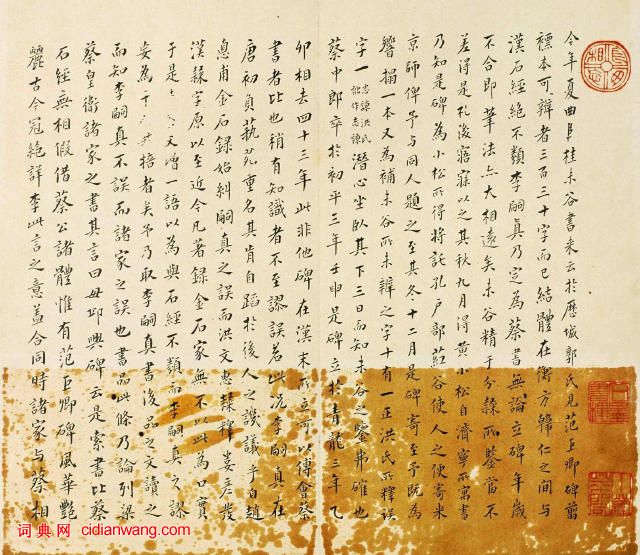 今年夏曲阜桂未谷書来云於歴城郭氏見范巨卿碑翦
褾本可辨者三百三十字而已結體在衡方韓仁之間與
漢石經絶不類李嗣真乃定為蔡書無論立碑年歲
不合即筆法亦大相遠矣未谷精于分隸所鑒當不
差得是札後寤寐以之其秋九月得黄小松自濟寧所寓書
乃知是碑為小松所得將託孔户部荭谷使人之便寄来
京師俾予與同人題之至其冬十二月是碑寄至予既為
響搨一本又為補未谷所未辨之字十有一正洪氏所釋誤
字一志諒洪氏訛作忠諒潛心坐卧其下三日而知未谷之鑒弗確也
蔡中郎卒於初平三年壬申是碑立於青龍三年乙
卯相去四十三年此非他碑在漢末所立可以傅會蔡
書者比也稍有知識者不至謬誤若此况李嗣真在
唐初負藝苑重名其肯自蹈於後人之譏議乎自趙
德甫金石録始糾嗣真之誤而洪文惠隸釋婁彦發
漢隸字原以至近今凡著録金石家無不以此為口實
于是未谷又增一語以為與石經不類而李嗣真之謬
妄為千古共揞者矣予乃取李嗣真書後品之文讀之
而知李嗣真不誤而諸家之誤也書品此條乃論列梁
蔡皇衛諸家之書其言曰毋邱興碑云是索書比蔡
石經無相假借蔡公諸體惟有范巨卿碑風華艷
麗古今冠絶詳李此言之意盖合同時諸家與蔡相
词典网：cidianwang.com